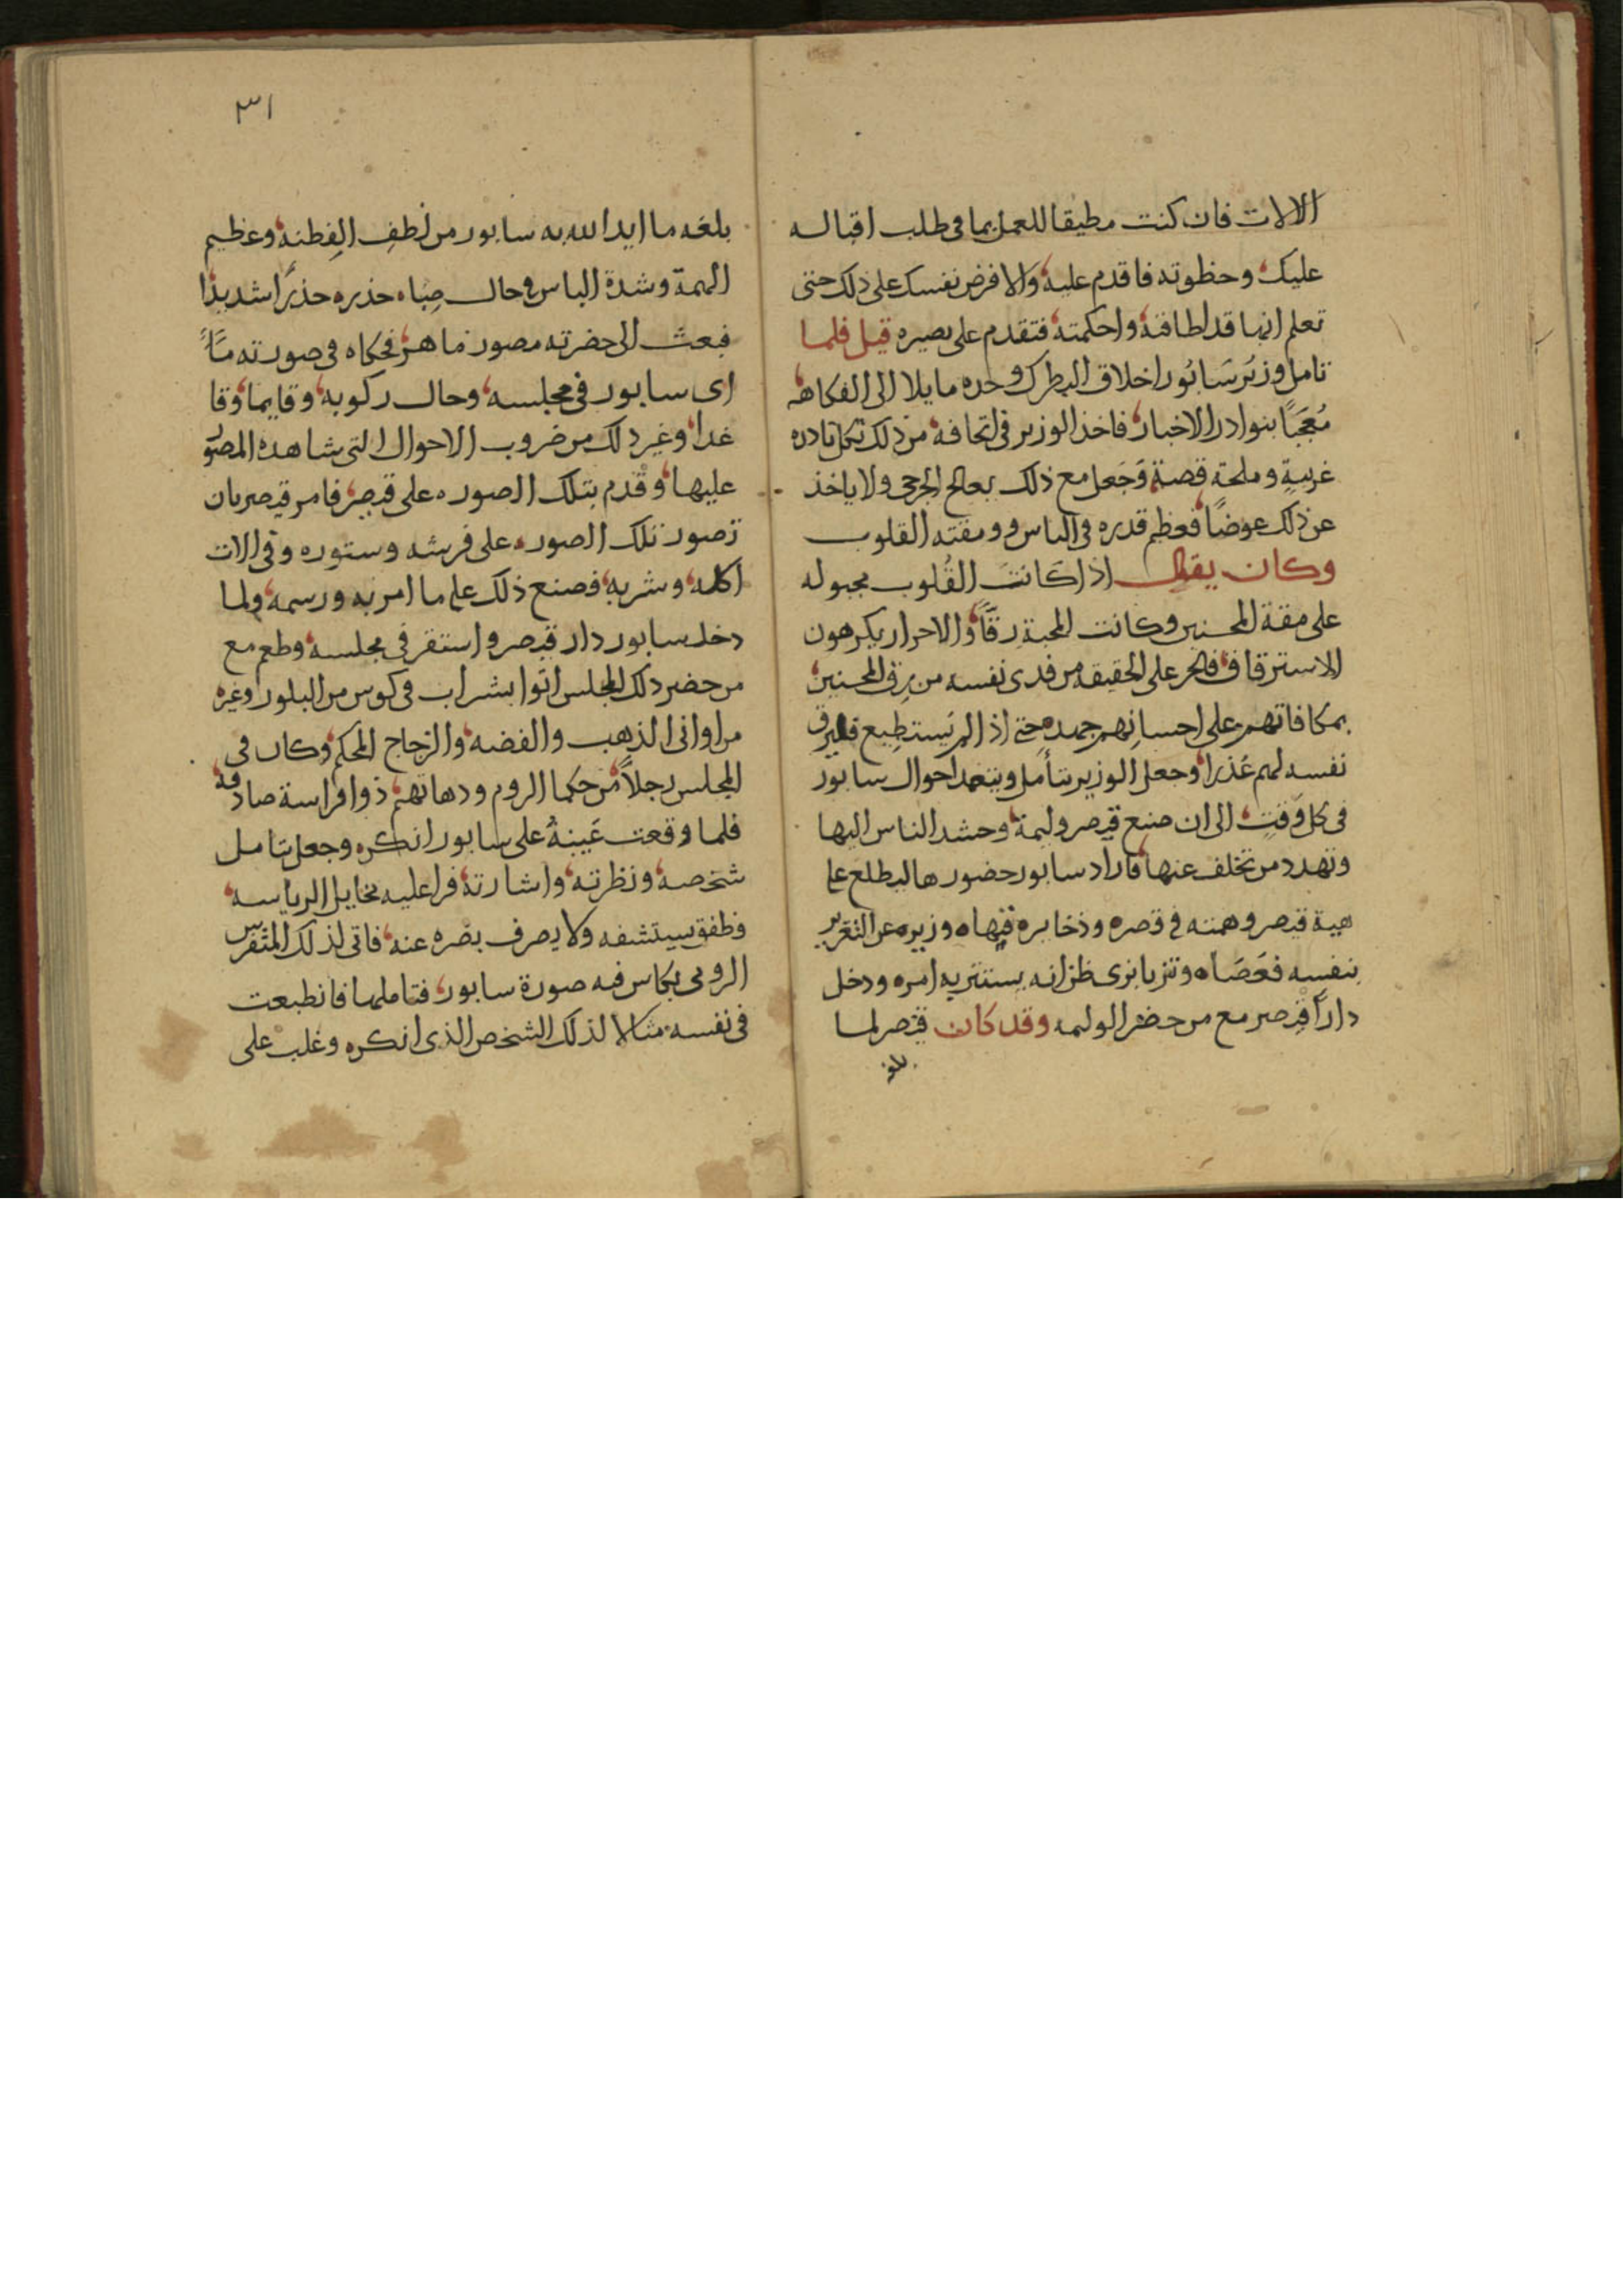 الالات فان كنت مطيقا للعمل بما فى طلب اقباله
عليك وحظوته فاقدم عليه والا فرض نفسك على ذلك حتى
تعلم انها قد اطاقته واحكمته فتقدم على بصيره قيل فلما
تامل وزير سَابُور اخلاق البطرك وجده مايلا الى الفكاهه
مُعجَبًا بنوادر الاخبار فاخذ الوزير فى اتحافه من ذلك بكل نادره
غريبةٍ وملحة قصة وَجَعل مع ذلك يعالج الجرحى ولا ياخذ
عن ذلك عوضًا فعظم قدره فى الناس وومقته القلوب
وكان يقال اذا كَانتَ القُلوب مجبوله
على مقة المحسنين وكانت المحبة رقًّا والاحرار يكرهون
الاسترقاق فالحر على الحقيقه من فدى نفسه من رق المحسنين
بمكافاتهم على احسانهم جهده حتى اذا لم يَستطِيع
نفسه لهم عُذرا وجعل الوزير يتأمل ويتعهد احوال سابور
فى كل وَقتٍ الى ان صنع قيصر وليمة وحشد الناس اليها
وتهدد من تخلف عنها فاراد سابور حضورها ليطلع على
هيبة قيصر وهمته فى قصره وذخايره فنهاه وزيره عن التغرير
بنفسه فعَصَاه وتزيا بزى ظن انه يستتر به امره ودخل
دارَ قيصر مع من حضر الوليمه وقد كان قيصر لما
بلغه
٣١
بلغه ما ايد الله به سابور من لطفِ الفِطنه وعظيم
الهمة وشدة الباس فى حال صِبَاه حذره حذرًا شديدًا
فبعث الى حضرته مصور ماهر فحكاه فى صورته متًا
اى سابور فى مجلسه وحال ركوبه وقايما وقا
عدا وغير ذلك من ضروب الاحوال التى شاهده المصور
عليها وقدم بتلك الصوره على قيصر فامر قيصر بان
تصور تلك الصوره على فرشه وستوره وفى الات
اكله وشربه فصنع ذلك على ما امر به ورسمه ولما
دخل سابور دار قيصر واستقر فى مجلسه وطعم مع
من حضر ذلك المجلس اتوا بشراب فى كوس من البلور وغيره
من اوانى الذهب والفضه والزجاج المحكم وكان فى
المجلس رجلاً من حكما الروم ودهاتهم ذوا فراسة صادقه
فلما وقعت عَينهُ على سابور انكره وجعل يتامل
شخصه ونظرته واشارته فرا عليه مخايل الرياسه
فطفق يستشفه ولا يصرف بصَره عنه فاتى لذلك المتفرس
الرومى بكاس فيه صورة سابور فتاملها فانطبعت
فى نفسه مثالا لذلك الشخص الذى انكره وغلب على